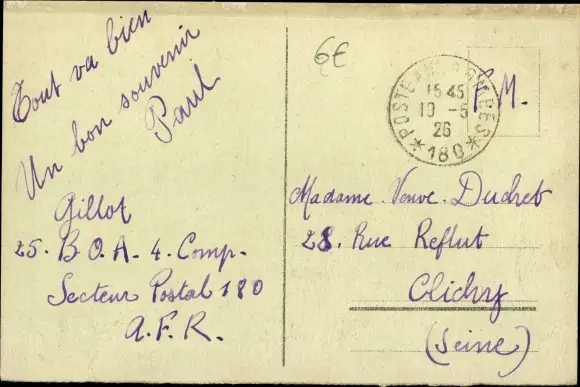 Tout va bien
Un bon souvenir
Paul
Gillot
25. B.O.A. 4. Comp.
Secteur Postal 180
A.F.R.
6€
POSTE AUX ARMEES
16 45
10 -5
26
* 180 *
F.M.
Madame Veuve Duchet
28. Rue Reflut
Clichy
(Seine)